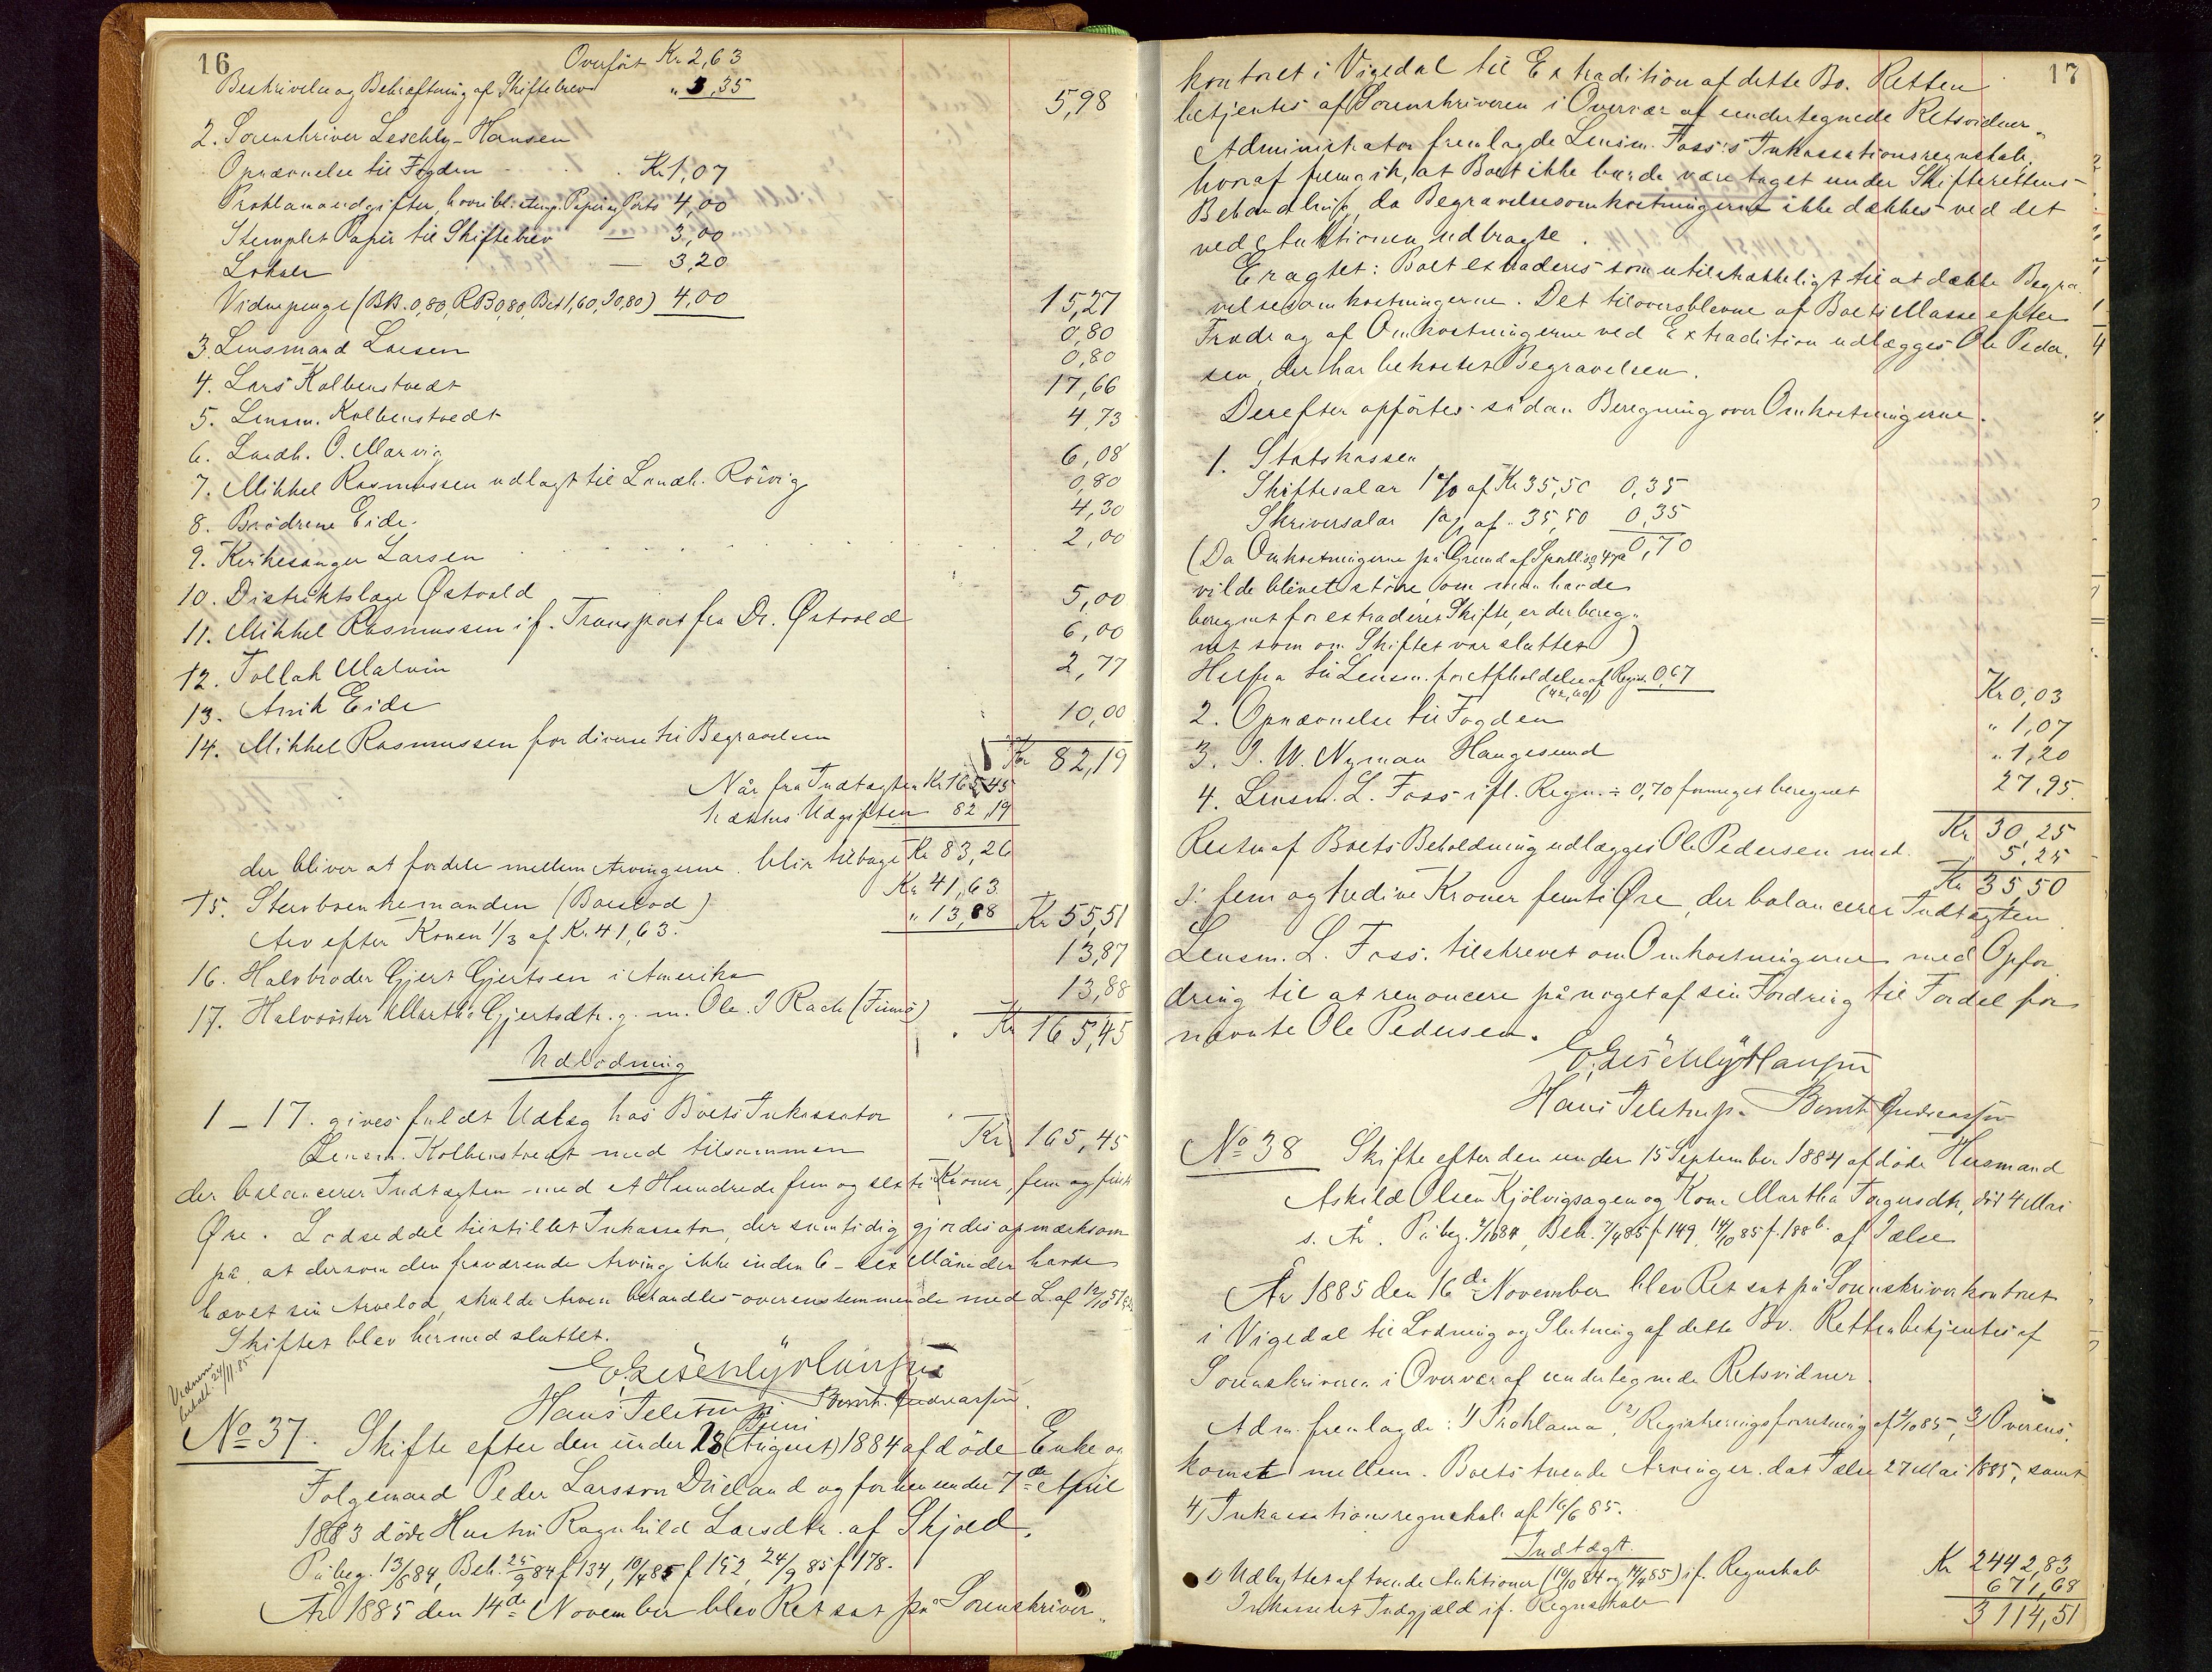 16
Overført Kr 2,63
Beskrivelse og Bekræftning af Skiftebrev " 3,35 5,98
2. Sorenskriver Leschly-Hansen
Opnævnelse til Fogden Kr 1,07
Proklamaudgifter, hvori bl. stemp. Papir og Porto 4,00
Stemplet Papir til Skiftebrev — 3,00
Lokale — 3,20
Vidnepenge (BB. 0,80, RB 0,80, Bes 1,60, 0,80) 4,00 15,27
3. Lensmand Larsen 0,80
4. Lars Kolbenstvedt 0,80
5. Lensm. Kolbenstvedt 17,66
6. Landh. O. Marvig 4,73
7. Mikkel Rasmussen udlagt til Landh. Röivig 6,08
8. Brödrene Eide. 0,80
9. Kirkesanger Larsen 4,30
10. Distriktslæge Østvold 2,00
11. Mikkel Rasmussen if. Transport fra Dr. Østvold 5,00
12. Tollak Malvin 6,00
13. Anik Eide 2,77
14. Mikkel Rasmussen for diverse til Begravelsen 10,00
Kr 82,19
Når fra Indtægten Kr 165,45
trækkes Udgiften 82,19
der bliver at fordele mellem Arvingerne. blir tilbage Kr 83,26
15. Stervboenkemanden (Boeslod) Kr 41,63
Arv efter Konen 1/3 af Kr. 41,63. " 13,88 Kr 55,51
16. Halvbroder Gjert Gjertsen i Amerika 13,87
17. Halvsöster Martha Gjertsdtr. g. m. Ole I Rach (Finnö) 13,88
Kr 165,45
Udlodning
1–17. gives fuldt Udlæg hos Boets Inkassator
Lensm. Kolbenstvedt med tilsammen Kr 165,45
der balancerer Indtægten med et Hundrede fem og sexti Kroner, fem og firti
Øre. Lodseddel tilstillet Inkassator, der samtidig gjordes opmærksom
på, at dersom den fraværende Arving ikke inden 6 – sex Måneder havde
hævet sin Arvelod, skulde Arven behandles overensstemmende med L. af 12/10 57
Skiftet blev hermed sluttet.
E. Leschly Hansen
Hans Teletrup. Bernt Andreassen.
Vidnem. betalt 24/11 85
No 37. Skifte efter den under 28 Juni (August) 1884 afdöde Enke og
Folgemand Peder Larsson Dueland og forhen under 7de April
1883 döde Hustru Ragnhild Larsdtr. af Skjold.
Påbeg. 13/8 84, Beh. 25/9 84 f 134, 10/4 85 f 152, 24/9 85 f 178.
År 1885 den 14de November blev Ret sat på Sorenskriver-
17
kontoret i Vigedal til Extradition af dette Bo. Retten
betjentes af Sorenskriveren i Overvær af undertegnede Retsvidner.
Administrator fremlagde Lensm. Foss's Inkassationsregnskab,
hvoraf fremgik, at Boet ikke burde være taget under Skifterettens
Behandling, da Begravelsesomkostningerne ikke dækkes ved det
ved Auktionen udbragte.
Eragtet: Boet extraderes som utilstrækkeligt til at dække Begra-
velsesomkostningerne. Det tiloversblevne af Boets Masse efter
Fradrag af Omkostningerne ved Extradition udlægges Ole Peder-
sen, der har bekostet Begravelsen.
Derefter opförtes sådan Beregning over Omkostningerne.
1. Statskassen
Skiftesalar 1 % af Kr 35,50 0,35
Skriversalar 1 % af " 35,50 0,35
0,70
(Da Omkostningerne på Grund af Sportl. § 47a
vilde blevet större om man havde
beregnet for extraderet Skifte, er der bereg-
net som om Skiftet var sluttet)
Herfra til Lensm. for Afholdelse af Regis. 0,67 Kr 0,03
2. Opnævnelse til Fogden " 1,07
3. I. W. Nyman Haugesund " 1,20
4. Lensm. L. Foss ifl. Regn. ÷ 0,70 formeget beregnet 27,95.
Kr 30,25
Resten af Boets Beholdning udlægges Ole Pedersen med. 5,25
Kr 35,50
s: fem og tredive Kroner femti Øre, der balancerer Indtægten
Lensm. L. Foss. tilskrevet om Omkostningerne med Opfor
dring til at renoncere på noget af sin Fordring til Fordel for
nævnte Ole Pedersen.
E. Leschly Hansen
Hans Teletrup. Bernt Andreassen
No 38 Skifte efter den under 15 September 1884 afdöde Husmand
Askild Olsen Kjölvigsagen og Kone Martha Torgersdtr, död 4 Mai
s. År. Påbeg. 84, Beh. 7/4 85 f 149, 14/10 85 f. 188 b. af Jælse
År 1885 den 16de November blev Ret sat på Sorenskriverkontoret
i Vigedal til Lodning og Slutning af dette Bo. Retten betjentes af
Sorenskriveren i Overvær af undertegnede Retsvidner.
Adm. fremlagde: 1) Proklama, 2) Registreringsforretning af 2/10 85, 3) Overens-
komst mellem Boets tvende Arvinger. dat Jælse 27 Mai 1885, samt
4) Inkassationsregnskab af 16/6 85.
Indtægt.
1) Udbyttet af tvende Auktioner (10/10 84 og 14/4 85) if. Regnskab Kr 2442,83
Inkasseret Indgjæld if. Regnskab 671,68
3114,51